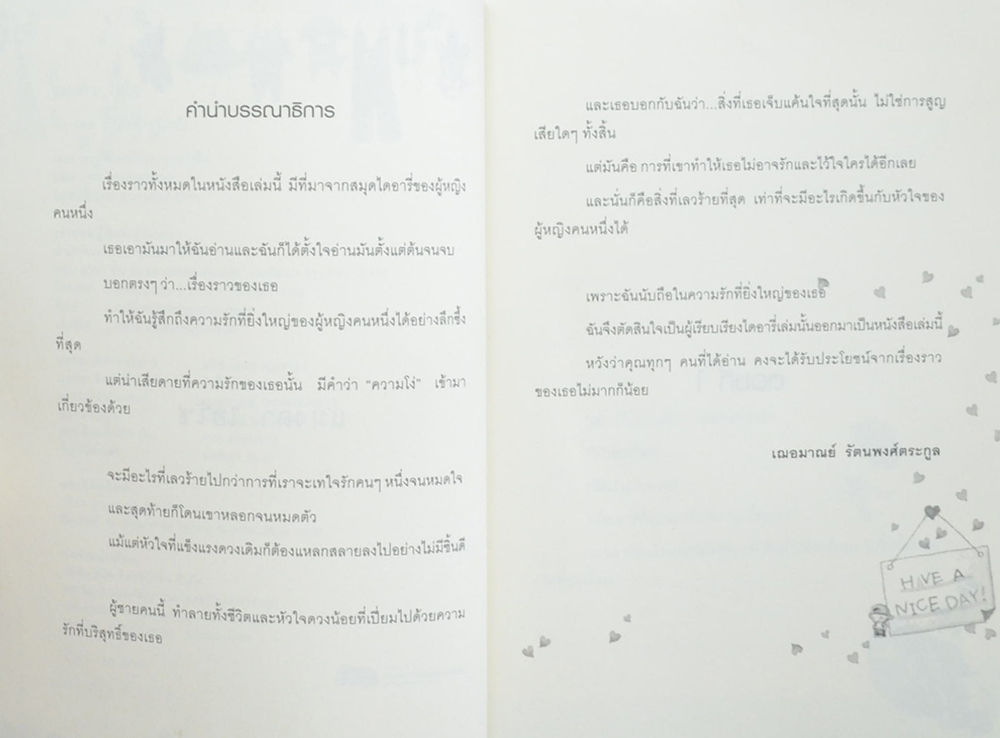 คำนำบรรณาธิการ
เรื่องราวทั้งหมดในหนังสือเล่มนี้ มีที่มาจากสมุดไดอารี่ของผู้หญิง
คนหนึ่ง
เธอเอามันมาให้ฉันอ่านและฉันก็ได้ตั้งใจอ่านมันตั้งแต่ต้นจนจบ
บอกตรงๆ ว่า...เรื่องราวของเธอ
ทำให้ฉันรู้สึกถึงความรักที่ยิ่งใหญ่ของผู้หญิงคนหนึ่งได้อย่างลึกซึ้ง
ที่สุด
แต่น่าเสียดายที่ความรักของเธอนั้น มีคำว่า "ความโง่" เข้ามา
เกี่ยวข้องด้วย
จะมีอะไรที่เลวร้ายไปกว่าการที่เราจะเทใจรักคนๆ หนึ่งจนหมดใจ
และสุดท้ายก็โดนเขาหลอกจนหมดตัว
แม้แต่หัวใจที่แข็งแรงดวงเดิมก็ต้องแหลกสลายลงไปอย่างไม่มีชิ้นดี
ผู้ชายคนนี้ ทำลายทั้งชีวิตและหัวใจดวงน้อยที่เปี่ยมไปด้วยความ
รักที่บริสุทธิ์ของเธอ
และเธอบอกกับฉันว่า...สิ่งที่เธอเจ็บแค้นใจที่สุดนั้น ไม่ใช่การสูญ
เสียใดๆ ทั้งสิ้น
แต่มันคือ การที่เขาทำให้เธอไม่อาจรักและไว้ใจใครได้อีกเลย
และนั่นก็คือสิ่งที่เลวร้ายที่สุด เท่าที่จะมีอะไรเกิดขึ้นกับหัวใจของ
ผู้หญิงคนหนึ่งได้
เพราะฉันนับถือในความรักที่ยิ่งใหญ่ของเธอ
ฉันจึงตัดสินใจเป็นผู้เรียบเรียงไดอารี่เล่มนั้นออกมาเป็นหนังสือเล่มนี้
หวังว่าคุณทุกๆ คนที่ได้อ่าน คงจะได้รับประโยชน์จากเรื่องราว
ของเธอไม่มากก็น้อย
เฌอมาณย์ รัตนพงศ์ตระกูล
HAVE A
NICE DAY!